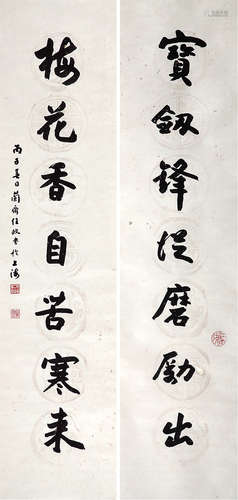 寶釼鋒從磨勵出
梅花香自苦寒来
丙子春日蘭齋任政書於上海